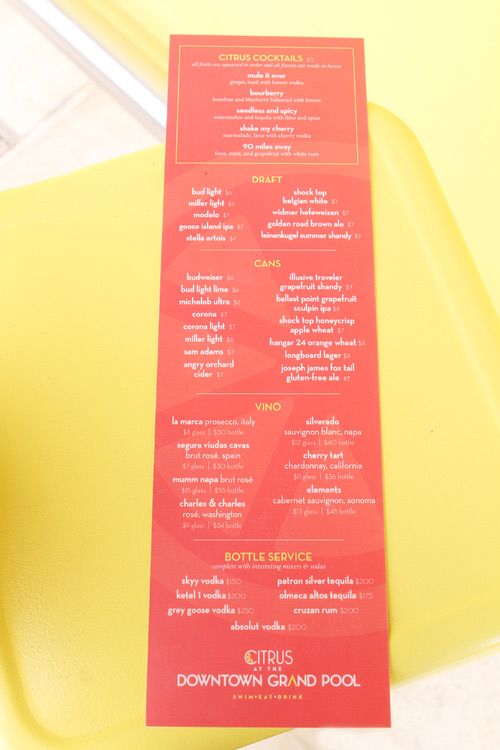 CITRUS COCKTAILS $12
all fruits are squeezed to order and all flavors are made in house
mule it over
ginger, basil with lemon vodka
bourberry
bourbon and blueberry balanced with lemon
seedless and spicy
watermelon and tequila with lime and spice
shake my cherry
marmalade, lime with cherry vodka
90 miles away
lime, mint, and grapefruit with white rum
DRAFT
bud light $6
miller light $6
modelo $7
goose island ipa $7
stella artois $7
shock top
belgian white $7
widmer hefeweizen $7
golden road brown ale $7
leinenkugel summer shandy $7
CANS
budweiser $6
bud light lime $6
michelob ultra $6
corona $7
corona light $7
miller light $6
sam adams $7
angry orchard
cider $7
illusive traveler
grapefruit shandy $7
ballast point grapefruit
sculpin ipa $8
shock top honeycrisp
apple wheat $7
hangar 24 orange wheat $8
longboard lager $8
joseph james fox tail
gluten-free ale $7
VINO
la marca prosecco, italy
$8 glass | $30 bottle
segura viudas cavas
brut rosé, spain
$7 glass | $30 bottle
mumm napa brut rosé
$15 glass | $55 bottle
charles & charles
rosé, washington
$9 glass | $34 bottle
silverado
sauvignon blanc, napa
$12 glass | $40 bottle
cherry tart
chardonnay, california
$11 glass | $36 bottle
elements
cabernet sauvignon, sonoma
$13 glass | $45 bottle
BOTTLE SERVICE
complete with interesting mixers & sodas
skyy vodka $150
ketel 1 vodka $200
grey goose vodka $250
patron silver tequila $200
olmeca altos tequila $175
cruzan rum $200
absolut vodka $200
CITRUS
AT THE
DOWNTOWN GRAND POOL
SWIM•EAT•DRINK